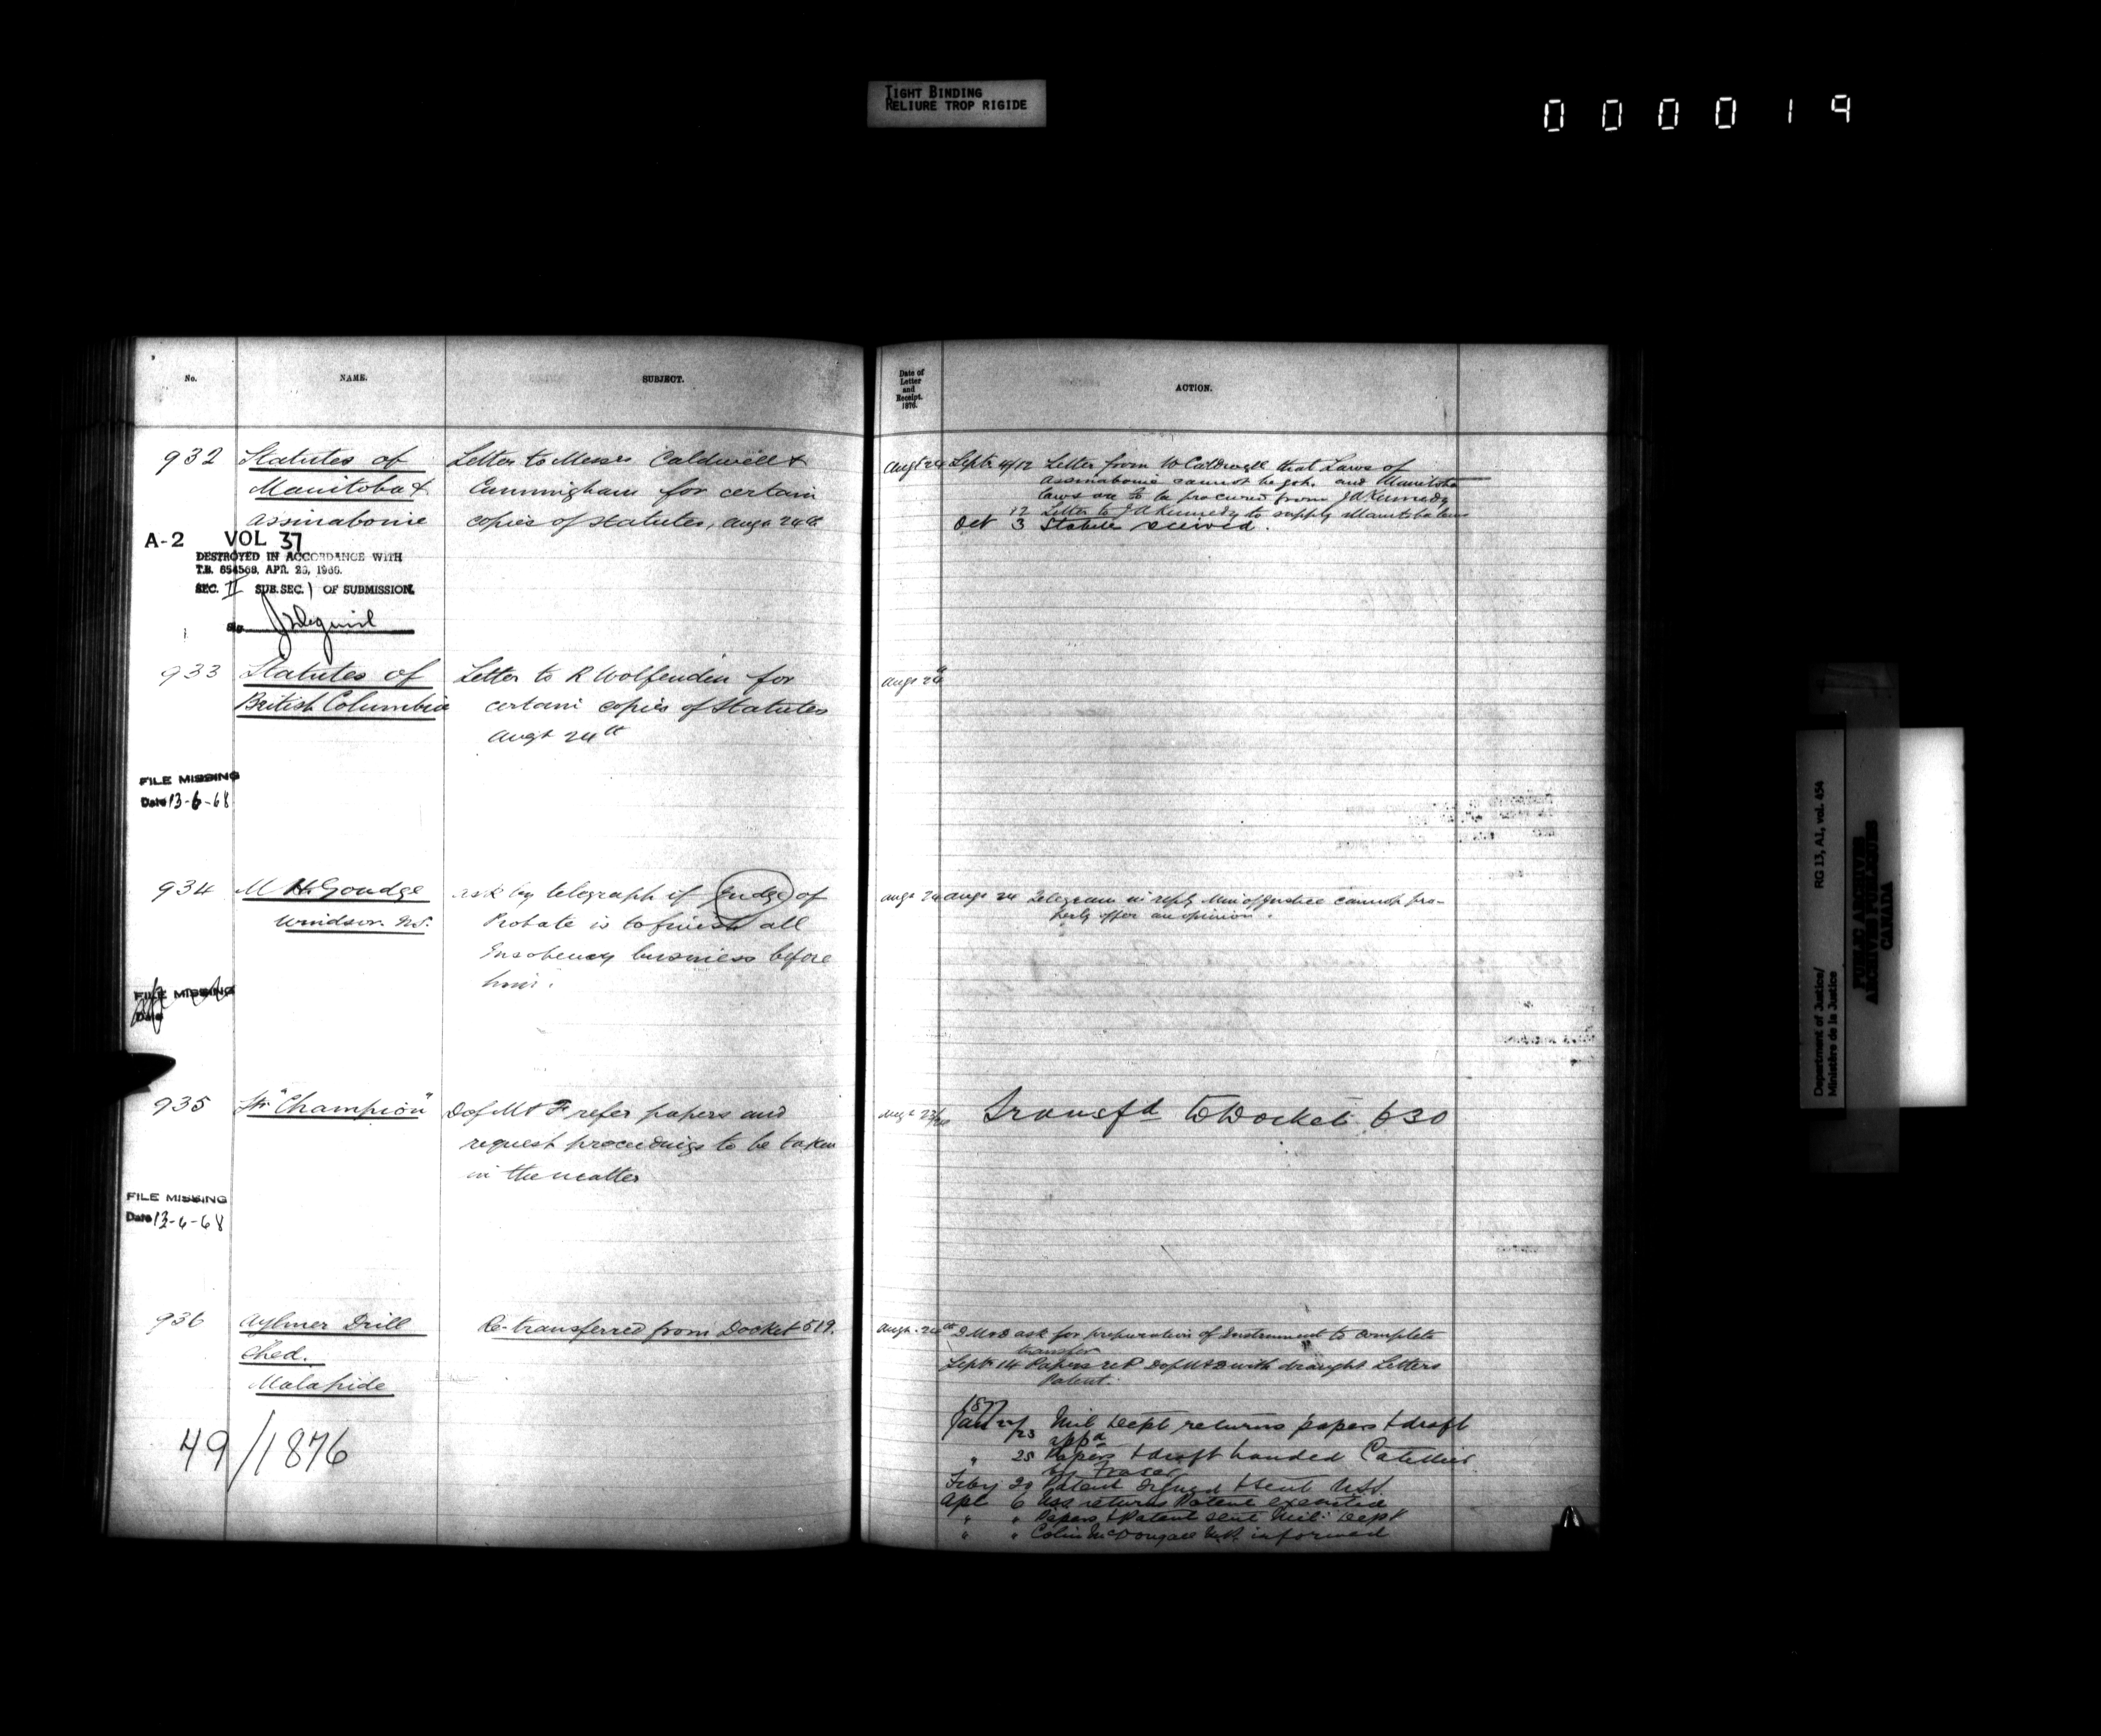 TIGHT BINDING
RELIURE TROP RIGIDE
000019
No.
NAME.
SUBJECT.
Date of
Letter
and
Receipt.
1876.
ACTION.
932
Statutes of
Manitoba &
Assinaboine
Letter to Messrs Caldwell &
Cunningham for certain
copies of statutes, Augt 24th
Augt 24
Septr 4/12 Letter from W Caldwell that Laws of
Assinaboine cannot be got. and Manitoba
laws are to be procured from J A Kennedy
12 Letter to J A Kennedy to supply Manitoba laws
Oct 3 Statutes received.
A-2 VOL 37
DESTROYED IN ACCORDANCE WITH
T.B. 654568, APR. 29, 1966.
SEC. II SUB.SEC. 1 OF SUBMISSION.
933
Statutes of
British Columbia
Letter to R Wolfenden for
certain copies of Statutes
Augt 24th
Augt 24
FILE MISSING
Date 13-6-68
934
M H Goudge
Windsor. N.S.
ask by telegraph if Judge of
Probate is to finish all
Insolvency business before
him.
Augt 24
Augt 24 Telegram in reply Min of Justice cannot pro-
perly offer an opinion.
FILE MISSING
Date
935
Str "Champion"
D of M & F refer papers and
request proceedings to be taken
in the matter
Augt 23/24
Transfd to Docket 630
FILE MISSING
Date 13-6-68
936
Aylmer Drill
Shed.
Malahide
Re-transferred from Docket 519.
Augt 24th
D M & D ask for preparation of Instrument to complete
transfer
Septr 14 Papers retd D of M & D with draught Letters
Patent.
1877
Jan 22/23 Mil Dept returns papers & draft
appd
" 25 Papers & draft handed Catellier
by Fraser
Feby 20 Patent signed & sent U.S.S.
Apl 6 USS returns Patent executed
" " Papers & Patent sent Mil: Dept
" " Colin McDougall M.P. informed
49/1876
Department of Justice/
Ministère de la Justice
RG 13, A1, vol. 454
PUBLIC ARCHIVES
ARCHIVES PUBLIQUES
CANADA